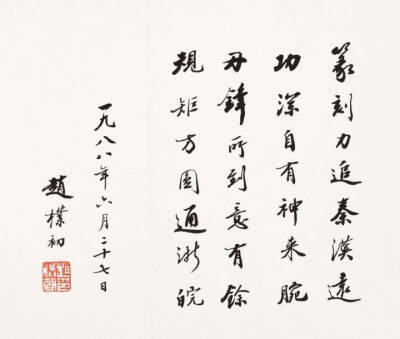 篆刻力追秦漢遠
功深自有神来腕
鋒所到意有餘
規矩方圓通浙皖
一九八八年六月二十七日
趙樸初